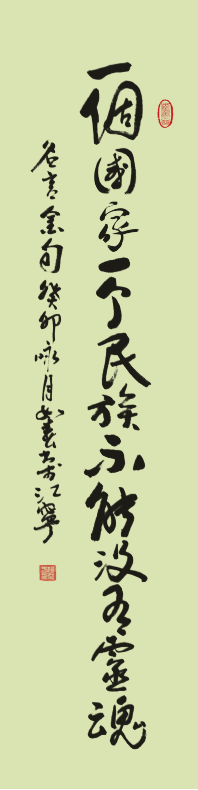 一個國家一个民族不能没有靈魂
名言金句癸卯咏月書於江寧